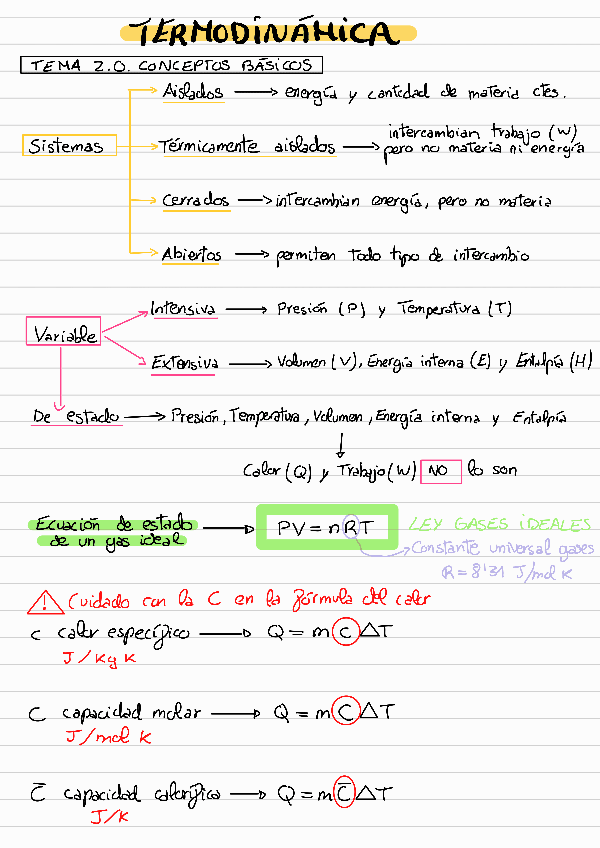 TERMODINÁMICA
TEMA 2.0. CONCEPTOS BÁSICOS
Sistemas
Aislados → energía y cantidad de materia ctes.
Térmicamente aislados → intercambian trabajo (W)
pero no materia ni energía
Cerrados → intercambian energía, pero no materia
Abiertos → permiten todo tipo de intercambio
Variable
Intensiva → Presión (P) y Temperatura (T)
Extensiva → Volumen (V), Energía interna (E) y Entalpía (H)
De estado → Presión, Temperatura, Volumen, Energía interna y Entalpía
Calor (Q) y Trabajo (W) NO lo son
Ecuación de estado
de un gas ideal → PV = nRT
LEY GASES IDEALES
Constante universal gases
R = 8'31 J/mol K
! Cuidado con la C en la fórmula del calor
c calor específico → Q = m C △T
J/Kg K
C capacidad molar → Q = m C △T
J/mol K
C̅ capacidad calorífica → Q = m C̅ △T
J/K